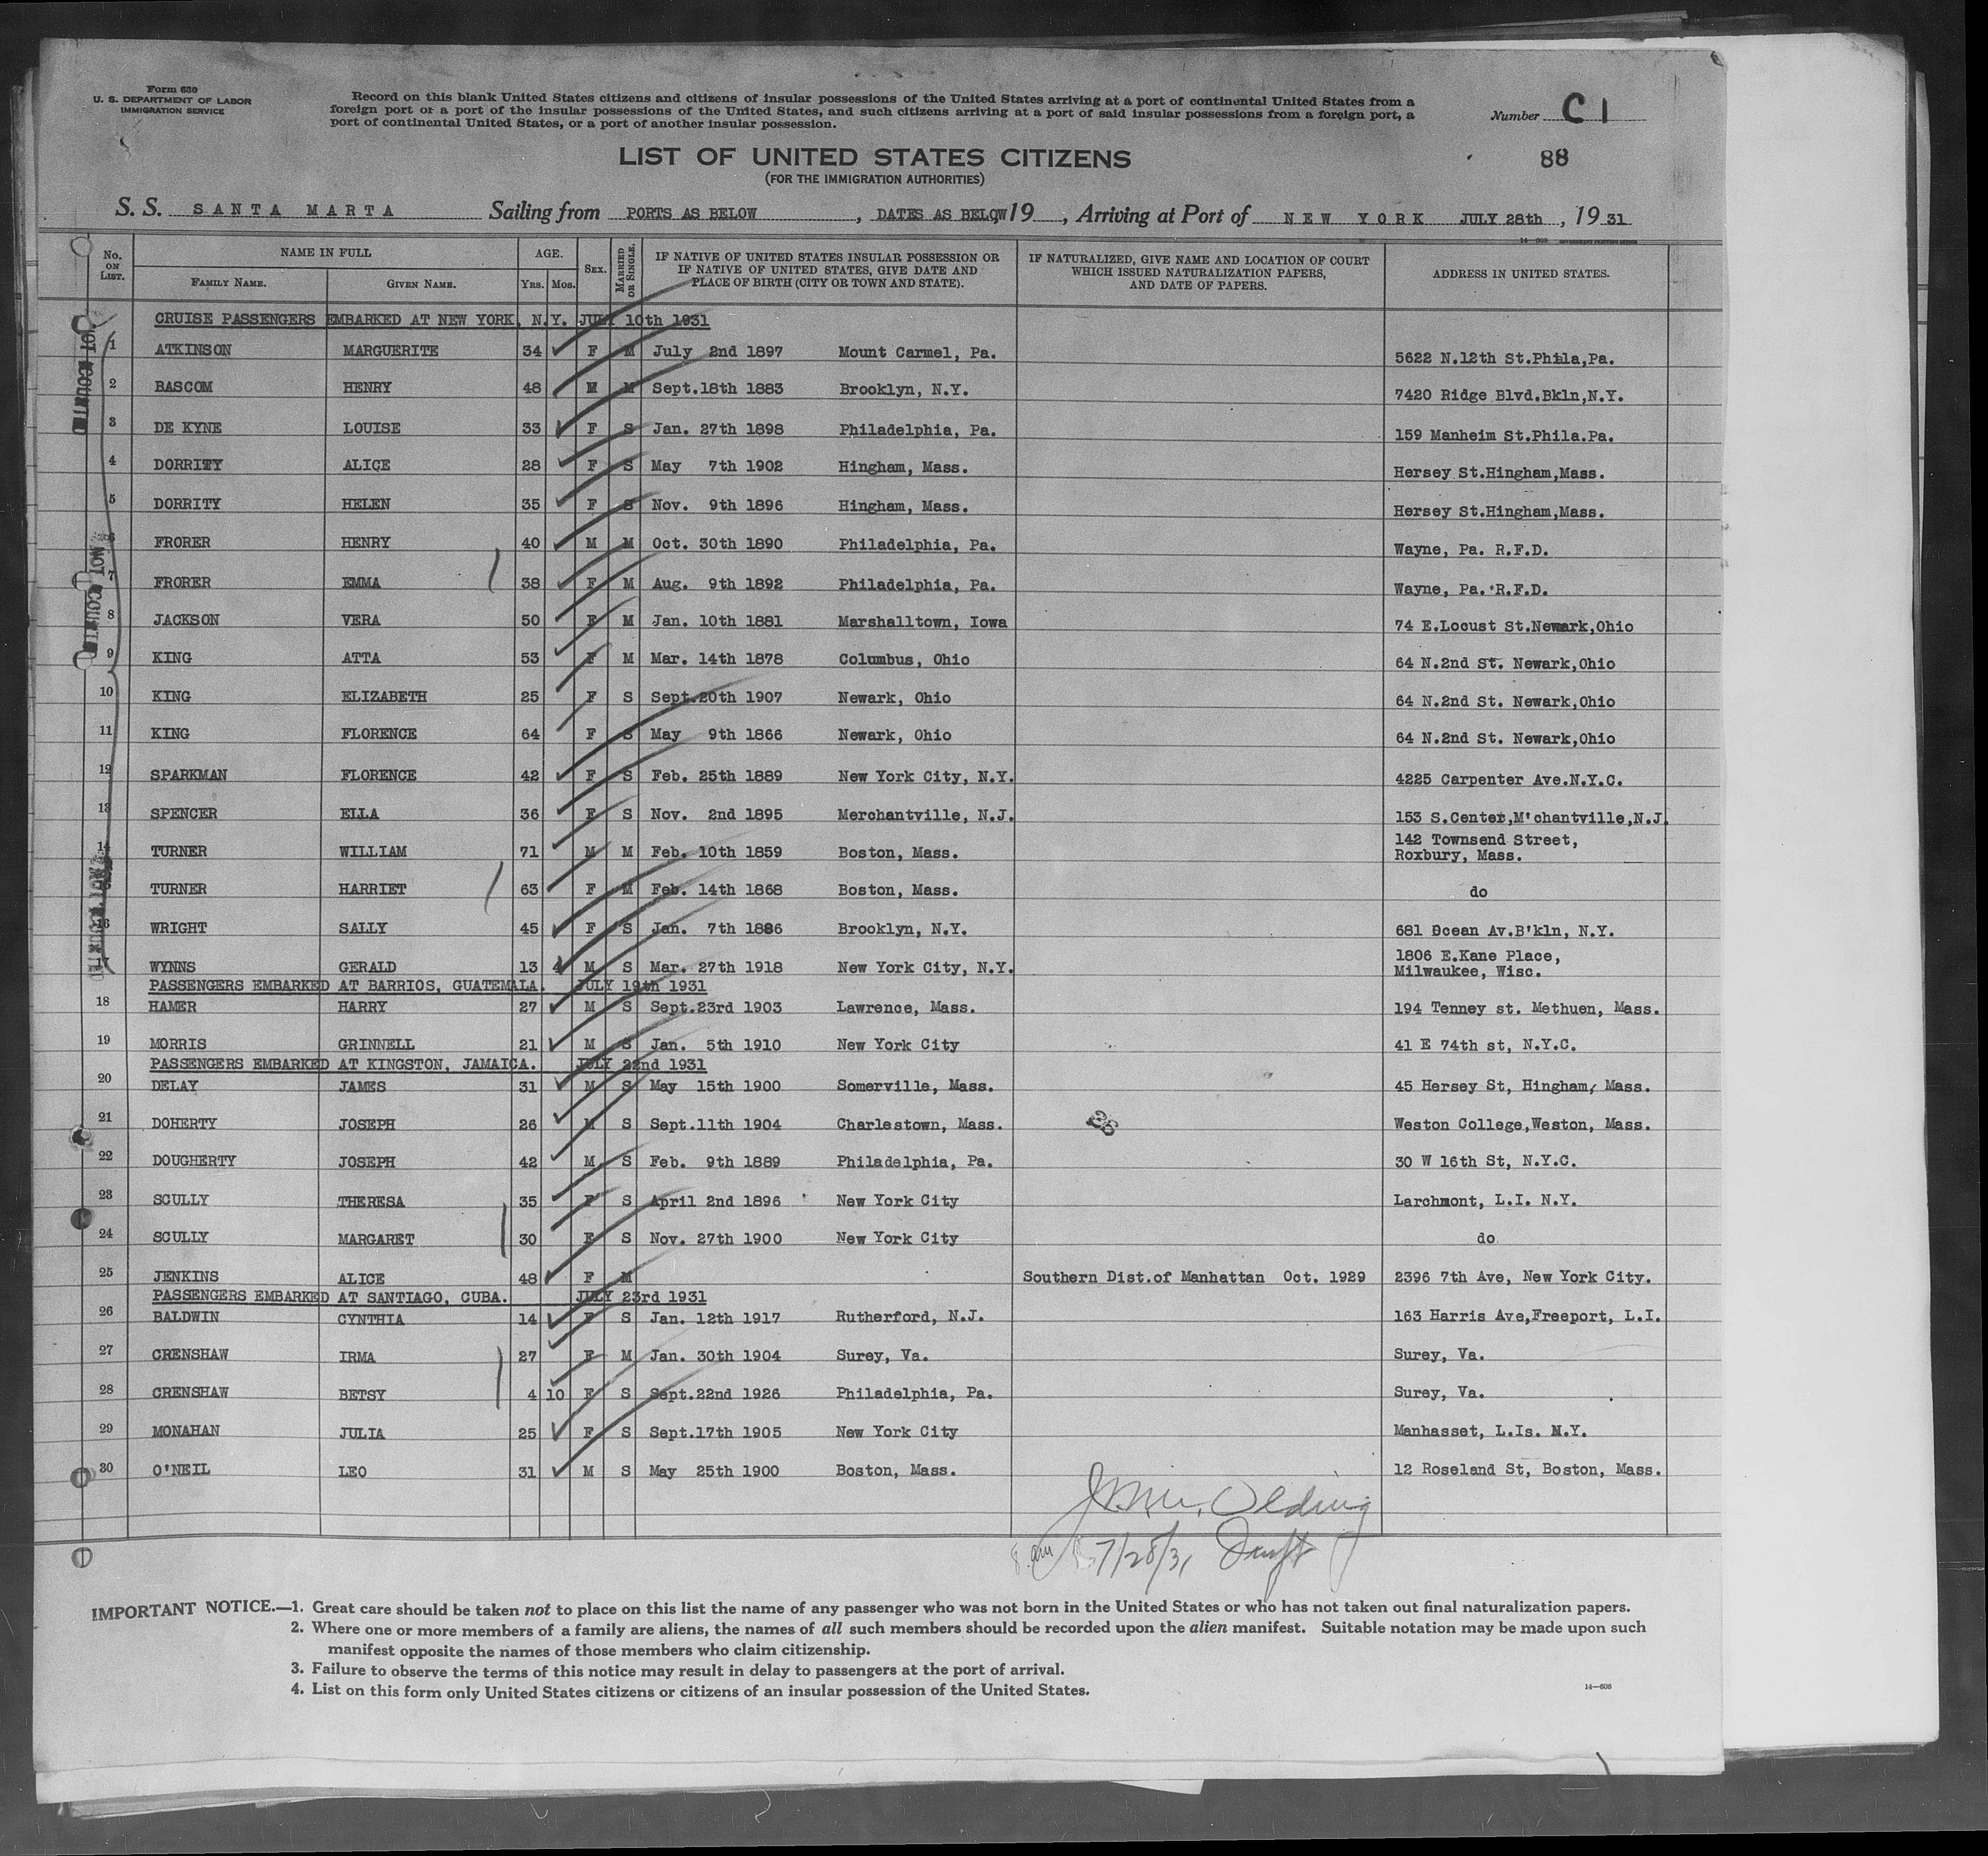 Form 630
U. S. DEPARTMENT OF LABOR
IMMIGRATION SERVICE
Record on this blank United States citizens and citizens of insular possessions of the United States arriving at a port of continental United States from a
foreign port or a port of the insular possessions of the United States, and such citizens arriving at a port of said insular possessions from a foreign port, a
port of continental United States, or a port of another insular possession.
Number C 1
LIST OF UNITED STATES CITIZENS
(FOR THE IMMIGRATION AUTHORITIES)
88
S. S. SANTA MARTA Sailing from PORTS AS BELOW, DATES AS BELOW 19 , Arriving at Port of NEW YORK JULY 28th, 19 31
No. ON LIST. NAME IN FULL FAMILY NAME. GIVEN NAME. AGE. YRS. MOS. SEX. MARRIED OR SINGLE. IF NATIVE OF UNITED STATES INSULAR POSSESSION OR IF NATIVE OF UNITED STATES, GIVE DATE AND PLACE OF BIRTH (CITY OR TOWN AND STATE). IF NATURALIZED, GIVE NAME AND LOCATION OF COURT WHICH ISSUED NATURALIZATION PAPERS, AND DATE OF PAPERS. ADDRESS IN UNITED STATES.
CRUISE PASSENGERS EMBARKED AT NEW YORK, N.Y. JULY 10th 1931
1 ATKINSON MARGUERITE 34 F M July 2nd 1897 Mount Carmel, Pa. 5622 N.12th St.Phila,Pa.
2 BASCOM HENRY 48 M M Sept.18th 1883 Brooklyn, N.Y. 7420 Ridge Blvd.Bkln,N.Y.
3 DE KYNE LOUISE 33 F S Jan. 27th 1898 Philadelphia, Pa. 159 Manheim St.Phila.Pa.
4 DORRITY ALICE 28 F S May 7th 1902 Hingham, Mass. Hersey St.Hingham,Mass.
5 DORRITY HELEN 35 F S Nov. 9th 1896 Hingham, Mass. Hersey St.Hingham,Mass.
6 FRORER HENRY 40 M M Oct. 30th 1890 Philadelphia, Pa. Wayne, Pa. R.F.D.
7 FRORER EMMA 38 F M Aug. 9th 1892 Philadelphia, Pa. Wayne, Pa. R.F.D.
8 JACKSON VERA 50 F M Jan. 10th 1881 Marshalltown, Iowa 74 E.Locust St.Newark,Ohio
9 KING ATTA 53 F M Mar. 14th 1878 Columbus, Ohio 64 N.2nd St. Newark,Ohio
10 KING ELIZABETH 25 F S Sept.20th 1907 Newark, Ohio 64 N.2nd St. Newark,Ohio
11 KING FLORENCE 64 F S May 9th 1866 Newark, Ohio 64 N.2nd St. Newark,Ohio
12 SPARKMAN FLORENCE 42 F S Feb. 25th 1889 New York City, N.Y. 4225 Carpenter Ave.N.Y.C.
13 SPENCER ELLA 36 F S Nov. 2nd 1895 Merchantville, N.J. 153 S.Center,M'chantville,N.J.
14 TURNER WILLIAM 71 M M Feb. 10th 1859 Boston, Mass. 142 Townsend Street,
Roxbury, Mass.
TURNER HARRIET 63 F M Feb. 14th 1868 Boston, Mass. do
16 WRIGHT SALLY 45 F S Jan. 7th 1886 Brooklyn, N.Y. 681 Ocean Av.B'kln, N.Y.
17 WYNNS GERALD 13 4 M S Mar. 27th 1918 New York City, N.Y. 1806 E.Kane Place,
Milwaukee, Wisc.
PASSENGERS EMBARKED AT BARRIOS, GUATEMALA. JULY 19th 1931
18 HAMER HARRY 27 M S Sept.23rd 1903 Lawrence, Mass. 194 Tenney st. Methuen, Mass.
19 MORRIS GRINNELL 21 M S Jan. 5th 1910 New York City 41 E 74th st, N.Y.C.
PASSENGERS EMBARKED AT KINGSTON, JAMAICA. JULY 22nd 1931
20 DELAY JAMES 31 M S May 15th 1900 Somerville, Mass. 45 Hersey St, Hingham, Mass.
21 DOHERTY JOSEPH 26 M S Sept.11th 1904 Charlestown, Mass. Weston College,Weston, Mass.
22 DOUGHERTY JOSEPH 42 M S Feb. 9th 1889 Philadelphia, Pa. 30 W 16th St, N.Y.C.
23 SCULLY THERESA 35 F S April 2nd 1896 New York City Larchmont, L.I. N.Y.
24 SCULLY MARGARET 30 F S Nov. 27th 1900 New York City do
25 JENKINS ALICE 48 F M Southern Dist.of Manhattan Oct. 1929 2396 7th Ave, New York City.
PASSENGERS EMBARKED AT SANTIAGO, CUBA. JULY 23rd 1931
26 BALDWIN CYNTHIA 14 F S Jan. 12th 1917 Rutherford, N.J. 163 Harris Ave,Freeport, L.I.
27 CRENSHAW IRMA 27 F M Jan. 30th 1904 Surey, Va. Surey, Va.
28 CRENSHAW BETSY 4 10 F S Sept.22nd 1926 Philadelphia, Pa. Surey, Va.
29 MONAHAN JULIA 25 F S Sept.17th 1905 New York City Manhasset, L.Is. N.Y.
30 O'NEIL LEO 31 M S May 25th 1900 Boston, Mass. 12 Roseland St, Boston, Mass.
7/28/31
IMPORTANT NOTICE.—1. Great care should be taken not to place on this list the name of any passenger who was not born in the United States or who has not taken out final naturalization papers.
2. Where one or more members of a family are aliens, the names of all such members should be recorded upon the alien manifest. Suitable notation may be made upon such
manifest opposite the names of those members who claim citizenship.
3. Failure to observe the terms of this notice may result in delay to passengers at the port of arrival.
4. List on this form only United States citizens or citizens of an insular possession of the United States.
14—608